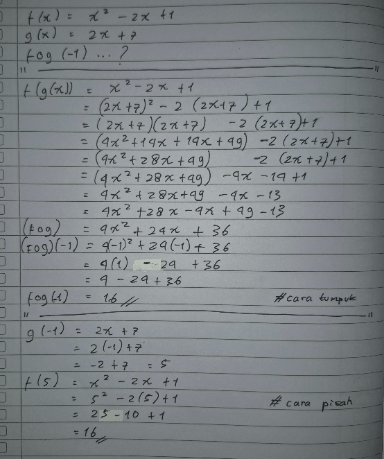 f(x) = x² - 2x + 1
g(x) = 2x + 7
fog (-1) ... ?
f(g(x)) = x² - 2x + 1
= (2x+7)² - 2 (2x+7) + 1
= (2x+7)(2x+7) - 2 (2x+7)+1
= (4x²+14x + 14x + 49) - 2 (2x+7)+1
= (4x² + 28x + 49) - 2 (2x+7)+1
= (4x² + 28x + 49) - 4x - 14 + 1
= 4x² + 28x + 49 - 4x - 13
= 4x² + 28x - 4x + 49 - 13
(fog) = 4x² + 24x + 36
(fog)(-1) = 4(-1)² + 24(-1) + 36
= 4(1) - 24 + 36
= 4 - 24 + 36
fog(-1) = 16 # cara tumpuk
g(-1) = 2x + 7
= 2(-1)+7
= -2 + 7 = 5
f(5) = x² - 2x + 1
= 5² - 2(5)+1 # cara pisah
= 25 - 10 + 1
= 16